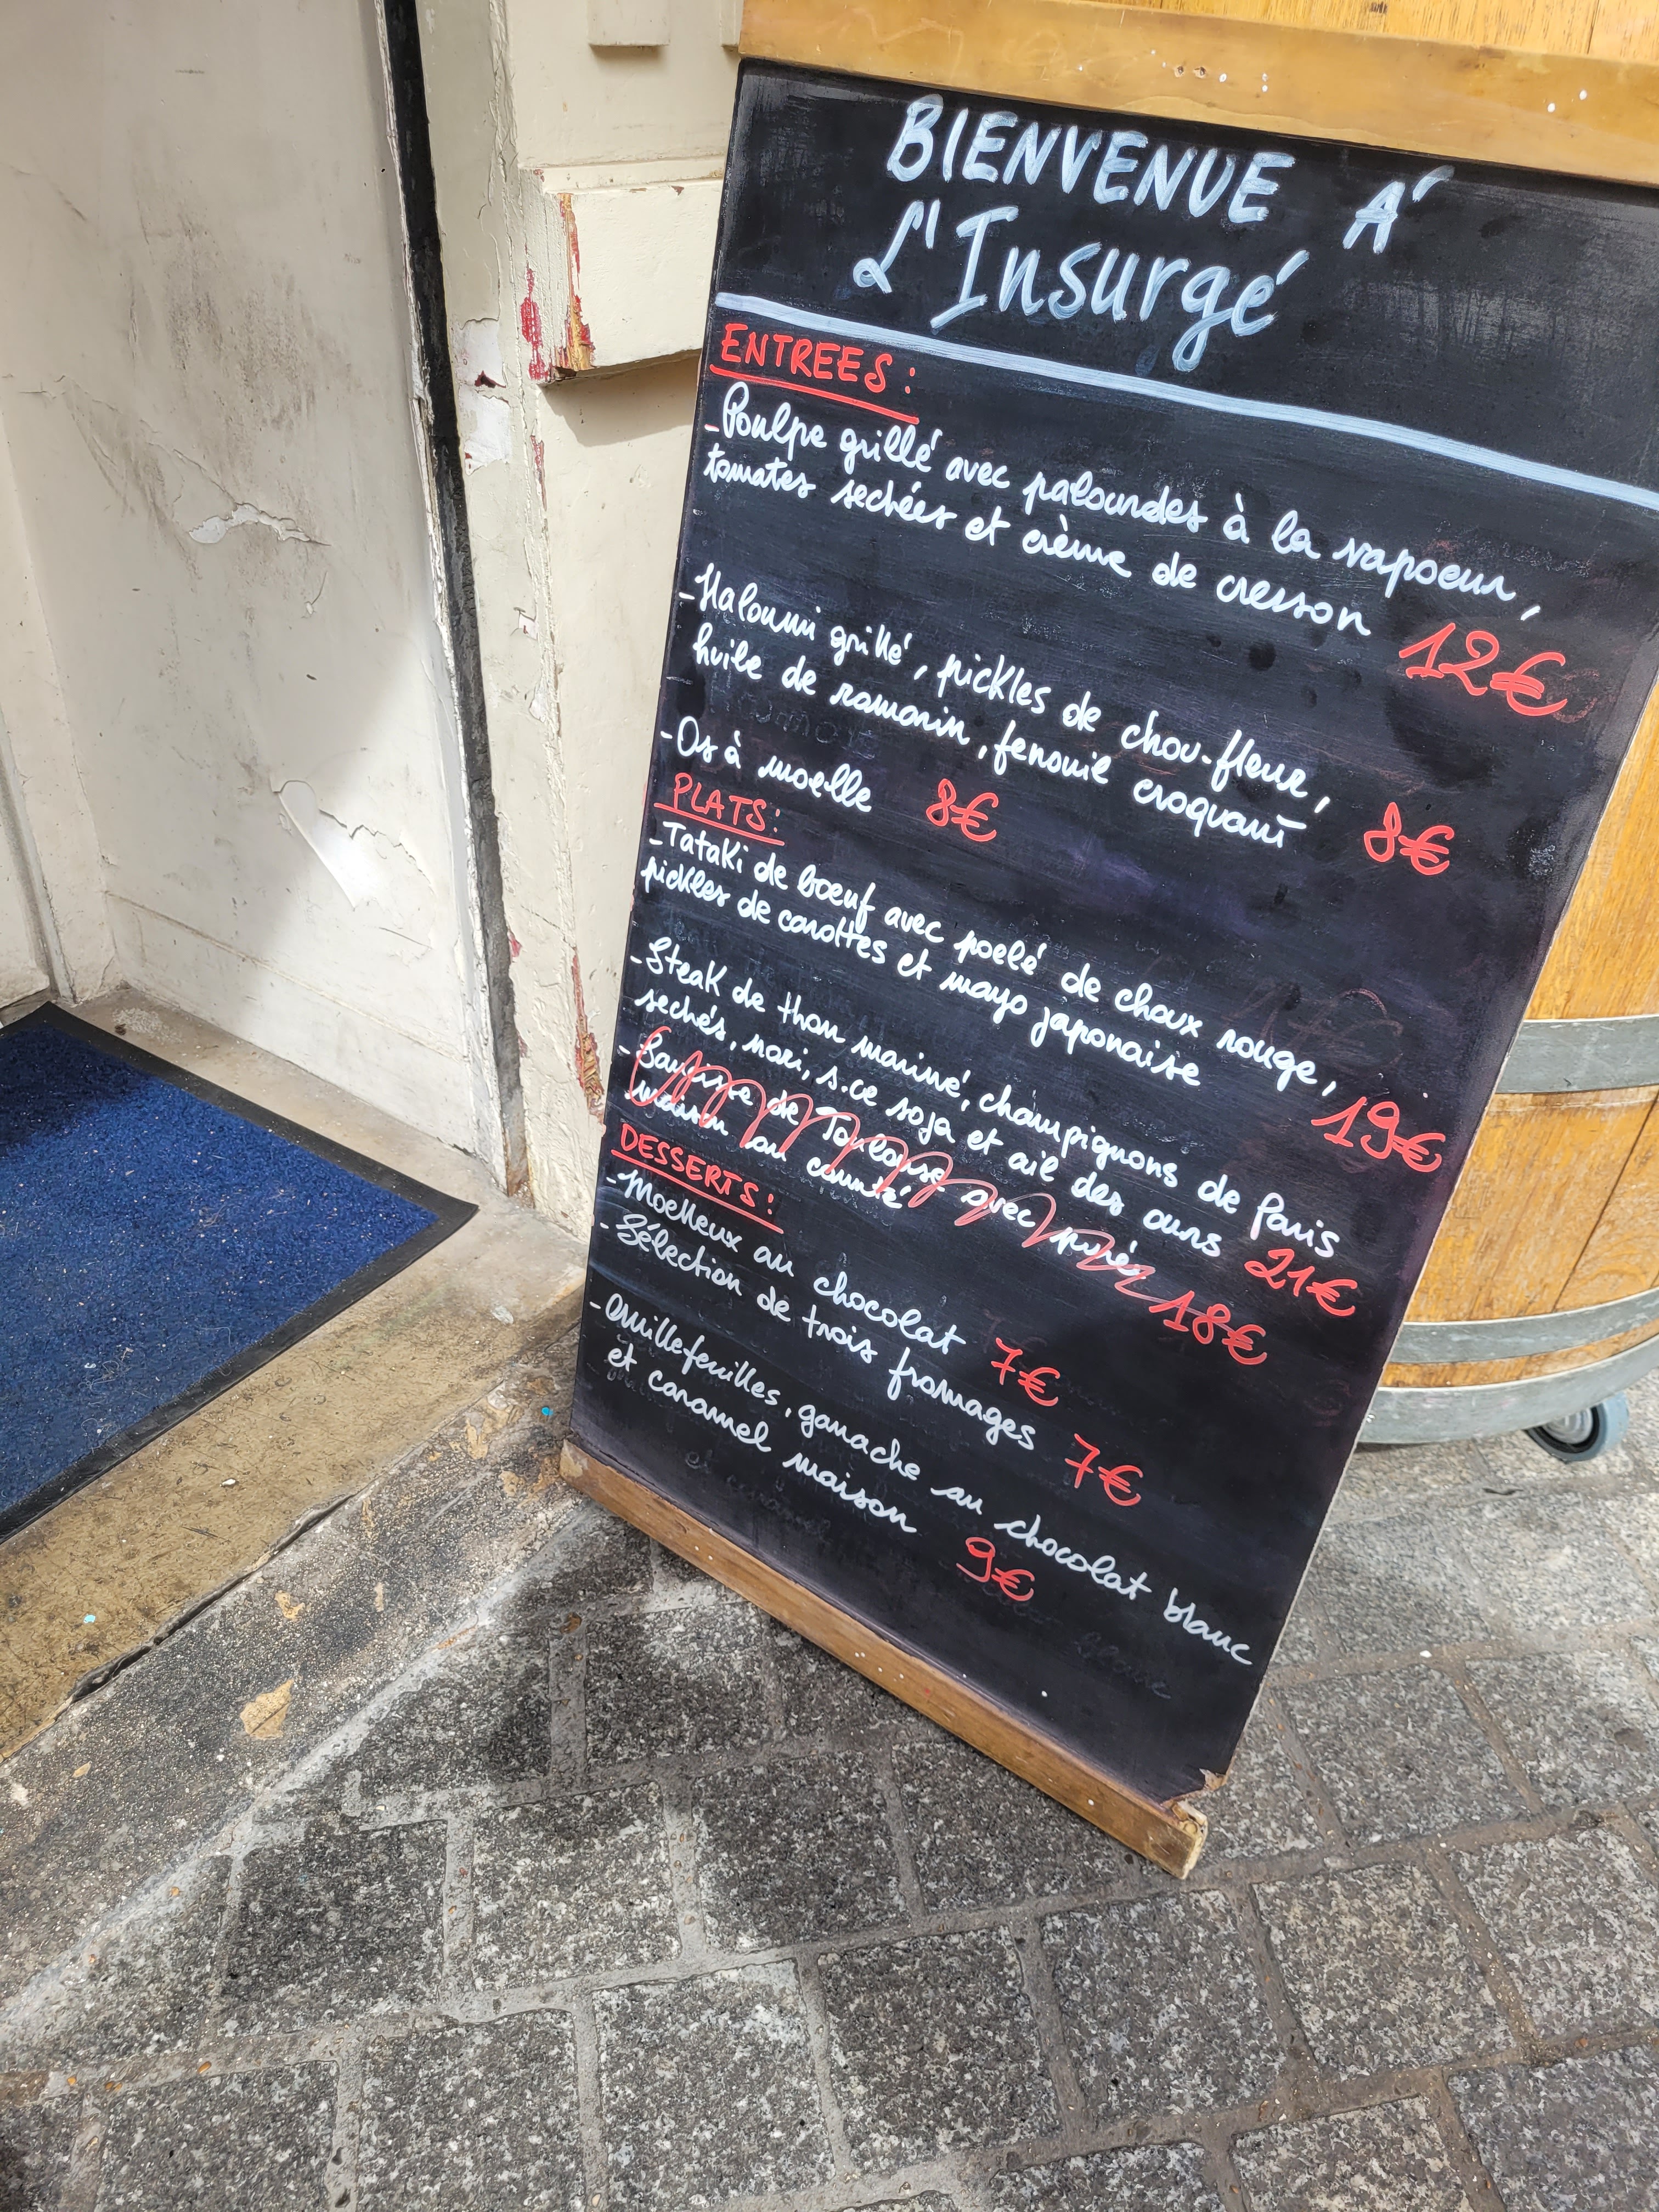 BIENVENUE A'
L'Insurgé
ENTREES :
-Poulpe grillé avec palourdes à la vapoeur,
tomates sechées et crème de cresson 12€
-Haloumi grillé, pickles de chou-fleur,
huile de romarin, fenouil croquant 8€
-Os à moelle 8€
PLATS:
-Tataki de boeuf avec poelé de choux rouge,
pickles de carottes et mayo japonaise 19€
-Steak de thon mariné, champignons de Paris
sechés, nori, s.ce soja et ail des ours 21€
- de Toulouse avec purée
maison au comté 18€
DESSERTS :
-Moelleux au chocolat 7€
-Sélection de trois fromages 7€
-Millefeuilles, ganache au chocolat blanc
et caramel maison 9€